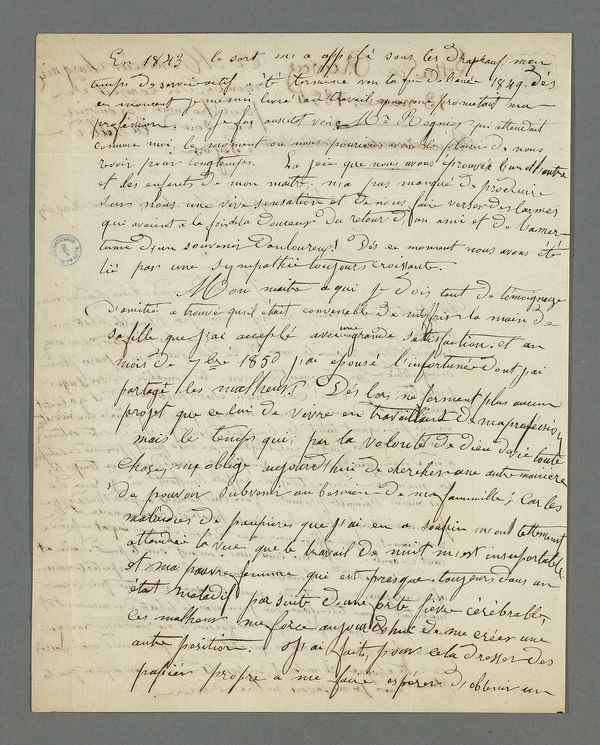 En 1843 le sort m'a appelé sous les drapeaux, mon
temps de service actif été terminé vers la fin de l'anée 1849. Dés
ce moment je me suis livré au travail que me promettait ma
profession. Je fus aussitot voir Mr Regnier qui attendait
comme moi, le moment ou nous pourrions avoir le plaisir de nous
revoir pour longtemps. La joie que nous avons éprouvée l'un et l'autre
et des enfants de mon maitre n'a pas manqué de produire
sur nous une vive sensation et de nous faire verser des larmes
qui avaient a la fois de la douceur du retour d'un ami et de l'amer-
tume d'un souvenir douloureux! Dés ce moment nous avons été
lié par une sympathie toujours croissante.
Mon maitre a qui je dois tant de témoignage
d'amitié a trouvé qu'il était convenable de m'offrir la main de
sa fille que j'ai accepté avec une grande satisfaction: et au
mois de 7bre 1850 j'ai épousé l'infortunée dont j'ai
partagé les malheurs. Dés lors ne formant plus aucun
projet que celui de vivre en travaillant de ma profession
mais le temps qui, par la volonté de Dieu détruit toute
chose, m'oblige aujourd'hui de chercher une autre manière
de pouvoir subvenir au besoin de ma famille; car les
maladies de paupières que j'ai eu a souffrir m'ont tellement
la vue que le travail de nuit m'est insuportable
et ma pauvre femme qui est presque toujours dans un
état maladif par suite d'une forte fièvre cérébrale,
ces malheur me force aujourd'hui de me créer une
autre position. J'ai fait, pour cela dresser des
papier propre a me faire espérer d'obtenir un